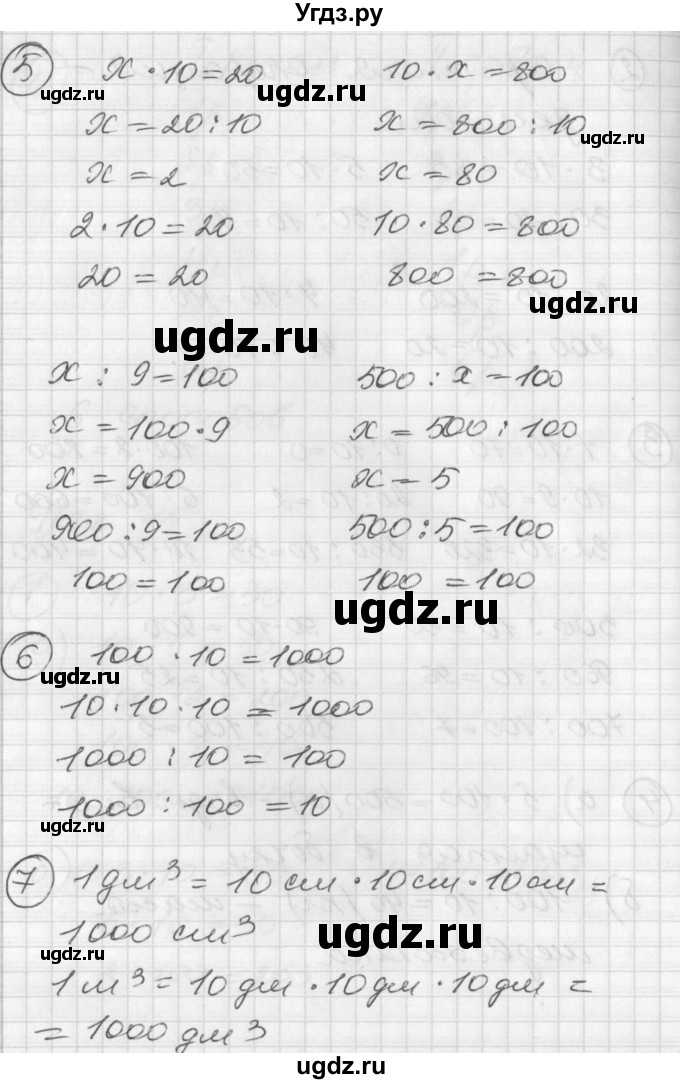 Угдз.ру
5 x · 10 = 20 10 · x = 800
ugdz.ru ugdz.ru
x = 20 : 10 x = 800 : 10
ugdz.ru
x = 2 x = 80
2 · 10 = 20 10 · 80 = 800
20 = 20 800 = 800
ugdz.ru
ugdz.ru
x : 9 = 100 500 : x = 100
x = 100 · 9 x = 500 : 100
ugdz.ru
x = 900 x = 5
900 : 9 = 100 500 : 5 = 100
100 = 100 100 = 100
ugdz.ru
6 100 · 10 = 1000
ugdz.ru
10 · 10 · 10 = 1000
1000 : 10 = 100
1000 : 100 = 10
ugdz.ru
7 1 дм³ = 10 см · 10 см · 10 см =
1000 см³
ugdz.ru
ugdz.ru
1 м³ = 10 дм · 10 дм · 10 дм =
= 1000 дм³
ugdz.ru